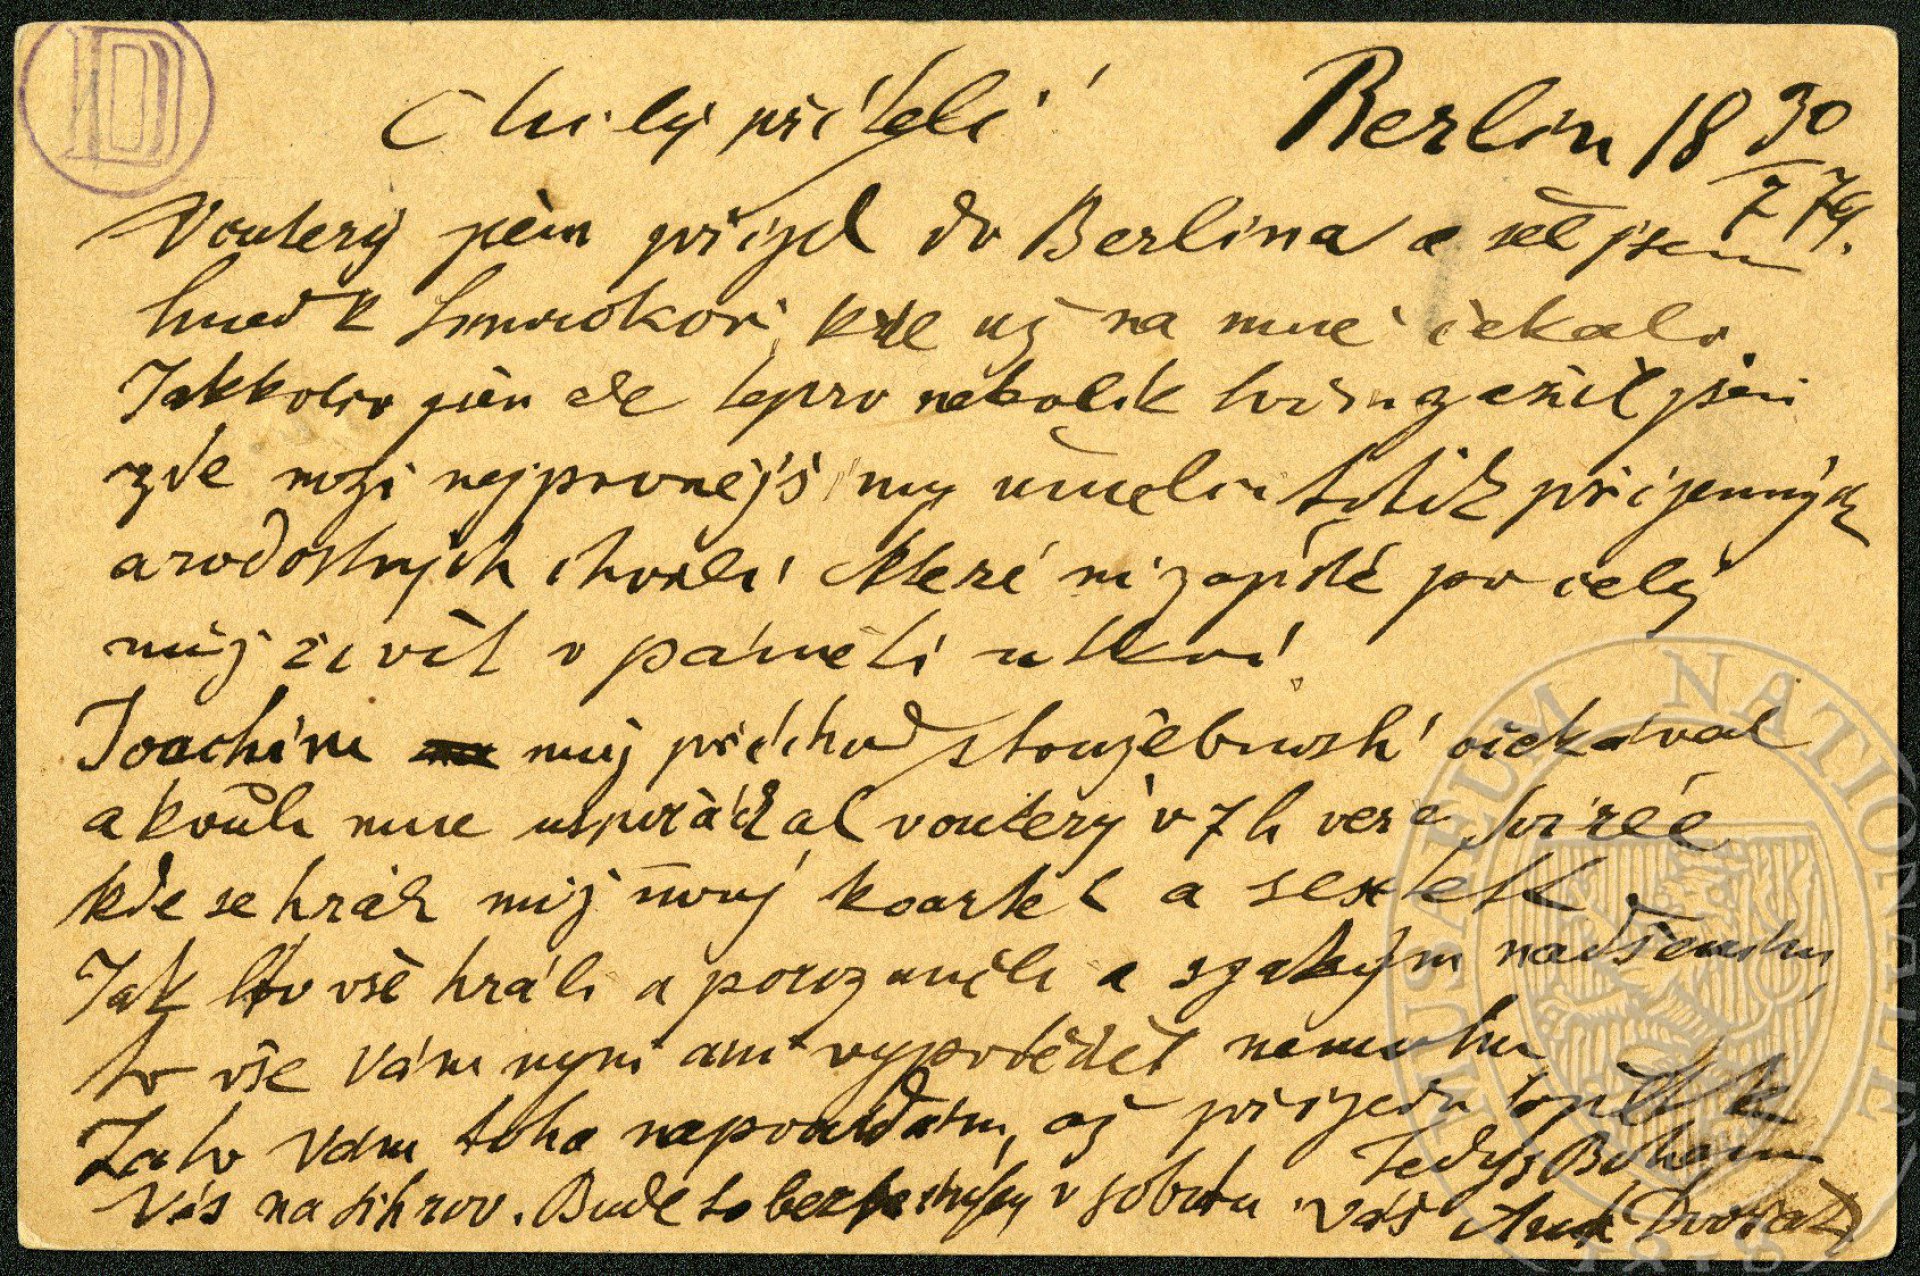 D
Milý příteli!
Berlin 18 30/7 79.
V outerý jsem přijel do Berlina a šel jsem
hned k Simrokovi, kde už na mne čekali.
Jakkoliv jsem zde teprv nekolik hodin zažil jsem
zde mezi nejprvnějšimy umělci tolik přijemných
a radostnych chvilí které mi zajisté po celý
můj život v pámeti utkví.
Joachim můj přichod stoužebně očekával
a kvuli mne uspořádal v outerý v 7 h več soirée
kde se hrál můj nový kvartet a sextett.
Jak to vše hráli a porozuměli a s jakým nadšením,
to vše Vám nyni ani vypovědět nemohu
Za to Vám toho napovidám, až přijedu opět k
Vás na Sihrov. Bude to bezpochyby v sobotu
Tedy z Bohem
Váš Ant Dvořák
MUSAEUM NATIONALE